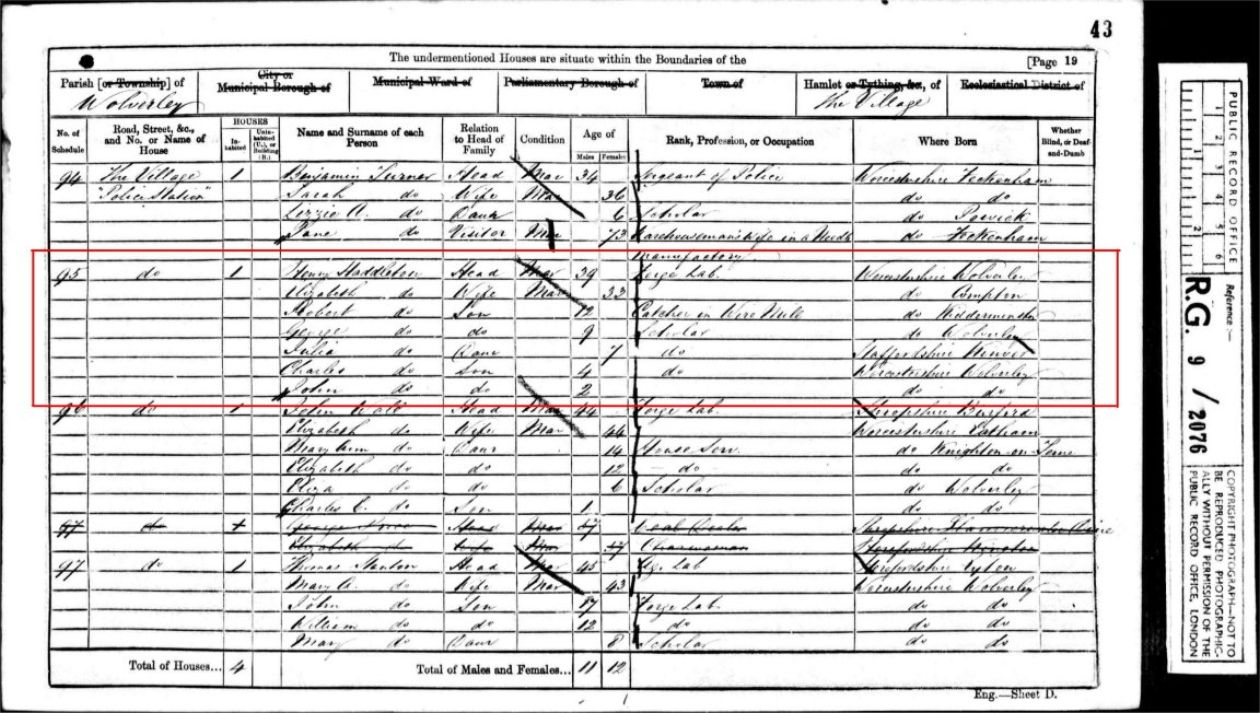 43
The undermentioned Houses are situate within the Boundaries of the [Page 19
Parish [or Township] of City or Municipal Borough of Municipal Ward of Parliamentary Borough of Town of Hamlet or Tything, &c., of Ecclesiastical District of
Wolverley The Village
No. of Schedule Road, Street, &c., and No. or Name of House HOUSES In-habited Unin-habited (U.), or Building (B.) Name and Surname of each Person Relation to Head of Family Condition Age of Males Females Rank, Profession, or Occupation Where Born Whether Blind, or Deaf-and-Dumb
94 The Village 1 Benjamin Turner Head Mar 34 Sergeant of Police Worcestershire Feckenham
"Police Station" Sarah do Wife Mar 36 do do
Lizzie A. do Daur 6 Scholar do Powick
Jane do Visitor Mar 73 Warehouseman's wife in a Needle do Feckenham
manufactory
95 do 1 Henry Haddleton Head Mar 39 Forge Lab. Worcestershire Wolverley
Elizabeth do Wife Mar 33 do Compton
Robert do Son 12 Catcher in Wire Mill do Kidderminster
George do do 9 Scholar do Wolverley
Julia do Daur 7 do Staffordshire Kinver
Charles do Son 4 do Worcestershire Wolverley
John do do 2 do do
96 do 1 John Wall Head Mar 44 Forge Lab. Shropshire Burford
Elizabeth do Wife Mar 44 Worcestershire
Mary Ann do Daur 14 House Serv. do Knighton-on-Teme
Elizabeth do do 12 do do do
Eliza do do 6 Scholar do Wolverley
Charles E. do Son 1 do do
97 do 1 George Head Mar 47 Coal Dealer Shropshire
Elizabeth do Wife Mar 47 Charwoman Herefordshire
97 do 1 Thomas Stanton Head Mar 45 Ag. Lab Herefordshire
Mary A. do Wife Mar 43 Worcestershire Wolverley
John do Son 17 Forge Lab. do do
William do do 12 do do do
Mary do Daur 8 Scholar do do
Total of Houses... 4 Total of Males and Females... 11 12
Eng.—Sheet D.
PUBLIC RECORD OFFICE
1 2 3 4 5 6
1 2
Reference:-
R.G. 9 / 2076
COPYRIGHT PHOTOGRAPH—NOT TO BE REPRODUCED PHOTOGRAPHIC-ALLY WITHOUT PERMISSION OF THE PUBLIC RECORD OFFICE, LONDON